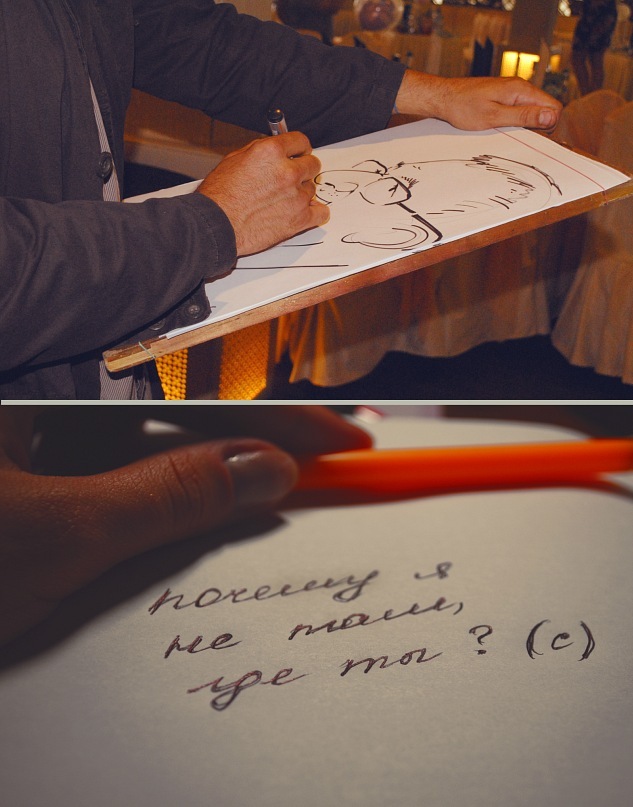 почему я
не там,
где ты? (с)